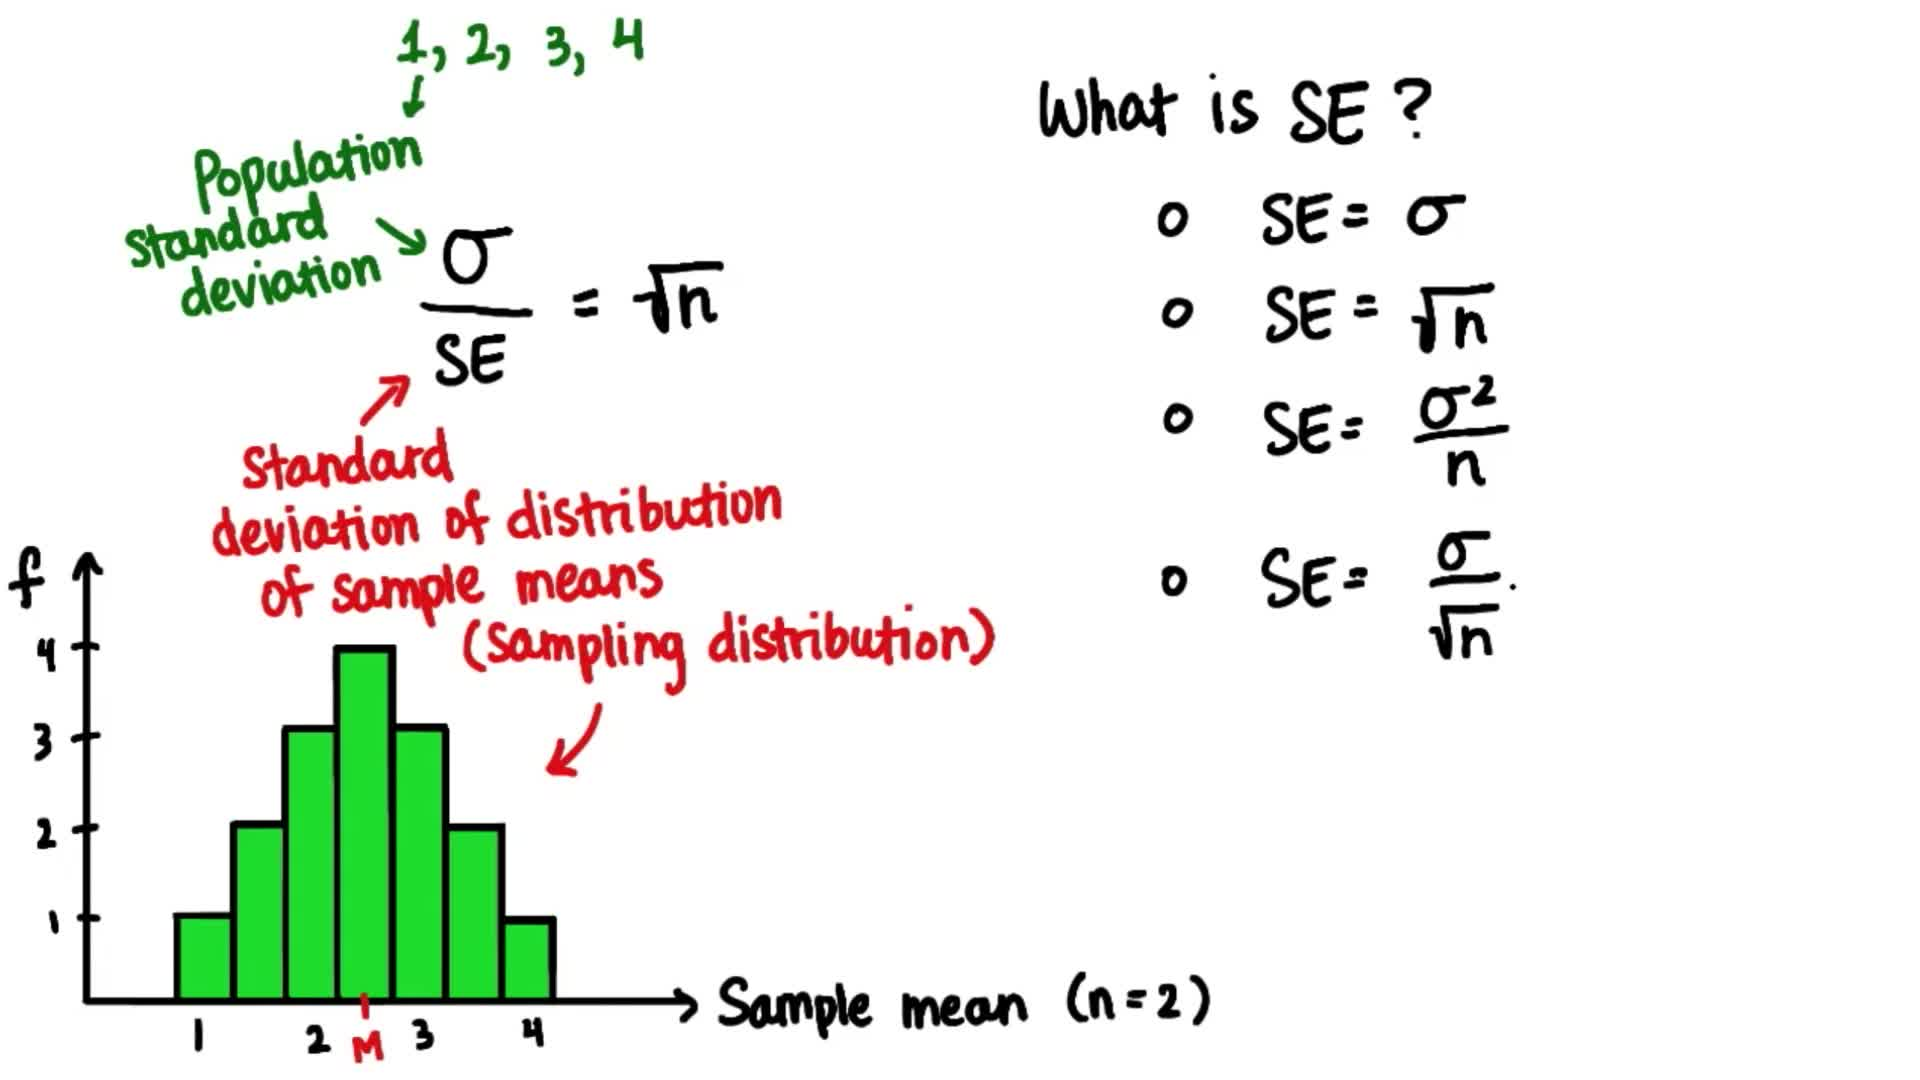 1, 2, 3, 4
Population
standard
deviation
σ
SE
= √n
Standard
deviation of distribution
of sample means
(sampling distribution)
f
4
3
2
1
1 2 M 3 4
Sample mean (n=2)
What is SE?
SE = σ
SE = √n
SE = σ²/n
SE = σ/√n